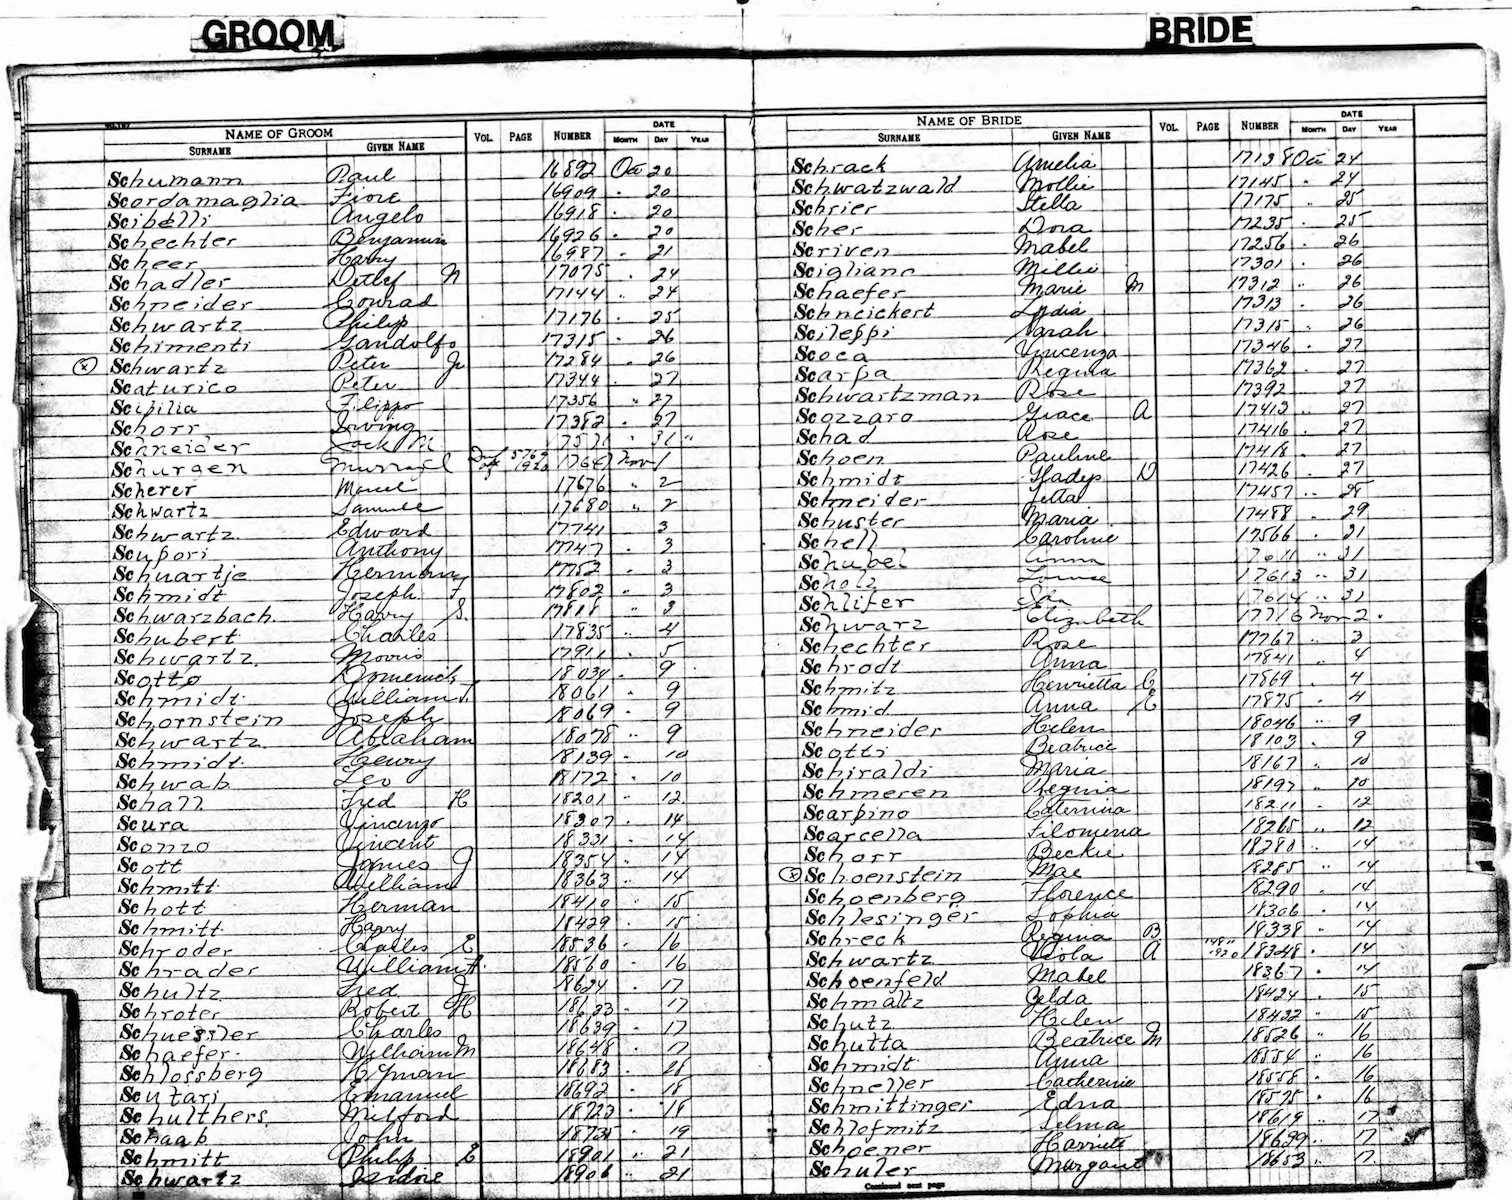 GROOM
NAME OF GROOM VOL. PAGE NUMBER DATE
SURNAME GIVEN NAME MONTH DAY YEAR
Schumann Paul 16892 Oct 20
Scordamaglia Fiore 16909 " 20
Scibelli Angelo 16918 " 20
Schechter Benjamin 16926 " 20
Scheer Harry 16987 " 21
Schadler Detlef N 17075 " 24
Schneider Conrad 17144 " 24
Schwartz Philip 17176 " 25
Schimenti Gandolfo 17315 " 26
(x) Schwartz Peter Jr 17284 " 26
Scaturico Peter 17344 " 27
Scipilia Filippo 17356 " 27
Schorr Irving 17382 " 27
Schneider Jack M 31 "
Schurgen Nov 1
Scherer 17676 " 2
Schwartz Samuel 17680 " 2
Schwartz Edward 17741 3
Scupori Anthony 17747 " 3
Schuartje Hermann 17752 " 3
Schmidt Joseph F 17802 " 3
Schwarzbach Harry S. 17818 " 3
Schubert Charles 17835 " 4
Schwartz Morris 17911 " 5
Scotto Domenick 18034 " 9
Schmidt William 18061 " 9
Schornstein Joseph 18069 " 9
Schwartz Abraham 18078 " 9
Schmidt Henry 18139 " 10
Schwab Leo 18172 " 10
Schall Fred H 18201 " 12
Scura Vincenzo 18307 " 14
Sconzo Vincent 18331 " 14
Scott James J 18354 " 14
Schmitt William 18363 " 14
Schott Herman 18410 " 15
Schmitt Harry 18429 " 15
Schroder Charles E 18536 " 16
Schrader William A. 18560 " 16
Schultz Fred J 18624 " 17
Schroter Robert H 18633 " 17
Schuessler Charles 18639 " 17
Schaefer William M 18648 " 17
Schlossberg Hyman 18683 " 28
Scutari Emanuel 18692 " 18
Schulthers Milford 18723 " 18
Schaab John 18735 " 19
Schmitt Philip E 18901 " 21
Schwartz Isidore 18906 " 21
BRIDE
NAME OF BRIDE VOL. PAGE NUMBER DATE
SURNAME GIVEN NAME MONTH DAY YEAR
Schrack Amelia 17138 Oct 24
Schwatzwald Mollie 17145 " 24
Schrier Stella 17175 " 25
Scher Dora 17235 " 25
Scriven Mabel 17256 " 26
Scigliano Millie 17301 " 26
Schaefer Marie M 17312 " 26
Schneickert Lydia 17313 " 26
Scileppi Sarah 17315 " 26
Scoca Vincenza 17346 " 27
Scarpa Regina 17362 " 27
Schwartzman Rose 17392 27
Scozzaro Grace A 17413 " 27
Schad Rose 17416 " 27
Schoen Pauline 17418 " 27
Schmidt Gladys D 17426 " 27
Schneider 17457 " 28
Schuster Maria 17488 " 29
Schell Caroline 17566 " 31
Schubel Anna 17611 " 31
Scholz Louise 17613 " 31
Schlifer 17614 " 31
Schwarz Elizabeth 17716 Nov 2
Schechter Rose 17767 " 3
Schrodt Anna 17841 " 4
Schmitz Henrietta C 17869 " 4
Schmid Anna E 17875 " 4
Schneider Helen 18046 " 9
Scotti Beatrice 18103 " 9
Schiraldi Maria 18167 " 10
Schmeren Regina 18197 " 10
Scarpino Caterina 18211 " 12
Scarcella Filomena 18265 " 12
Schorr Beckie 18280 " 14
(x) Schoenstein Mae 18285 " 14
Schoenberg Florence 18290 " 14
Schlesinger Sophia 18306 " 14
Schreck Regina B 18338 " 14
Schwartz Viola A 18348 " 14
Schoenfeld Mabel 18367 " 14
Schmaltz Zelda 18424 " 15
Schutz Helen 18432 " 15
Schutta Beatrice M 18526 " 16
Schmidt Anna 18554 " 16
Schneller Catherine 18558 " 16
Schmittinger Edna 18575 " 16
Schlefmitz Selma 18619 " 17
Schoener Harriet 18639 " 17
Schuler Margaret 18653 " 17
Continued next page